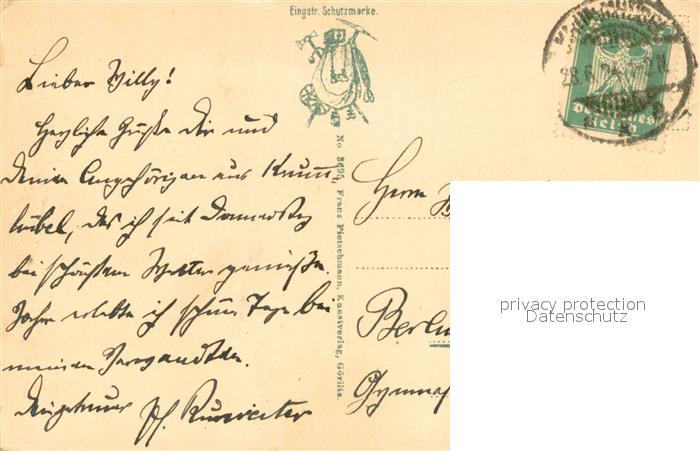 Eingetr. Schutzmarke.
Lieber Willy!
Herzliche Grüße Dir und
Deinen Angehörigen aus Krumm-
hübel, das ich seit Donnerstag
bei schönstem Wetter genieße.
Vorher erlebte ich schöne Tage bei
meinen Verwandten.
Dein getreuer
No 3694 Franz Pietschmann, Kunstverlag, Görlitz.
Herrn
Berlin
Gymnas
Deutsches
Reich
privacy protection
Datenschutz